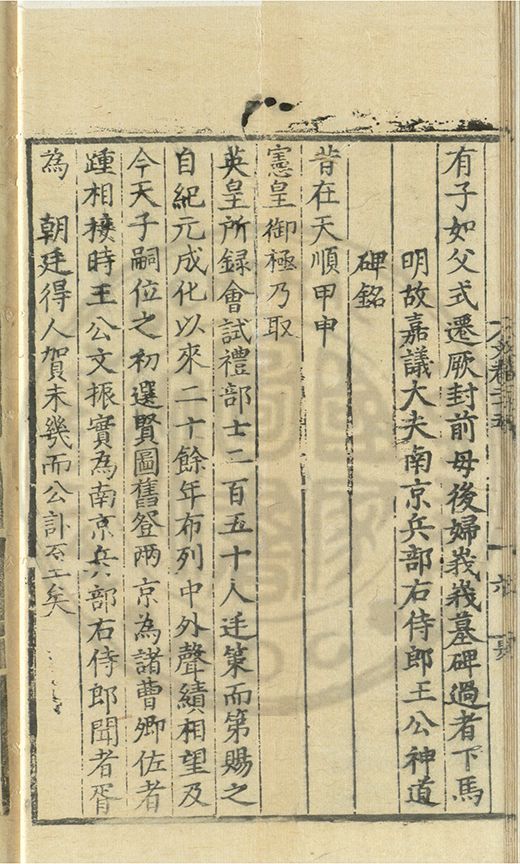 有子如父式遷厥封前母後婦峩峩墓碑過者下馬
明故嘉議大夫南京兵部右侍郎王公神道
碑銘
昔在天順甲申
憲皇御極乃取
英皇所録會試禮部士二百五十人廷策而第賜之
自紀元成化以來二十餘年布列中外聲績相望及
今天子嗣位之初選賢圖舊登兩京為諸曹卿佐者
踵相接時王公文振實為南京兵部右侍郎聞者胥
為 朝廷得人賀未幾而公訃至矣